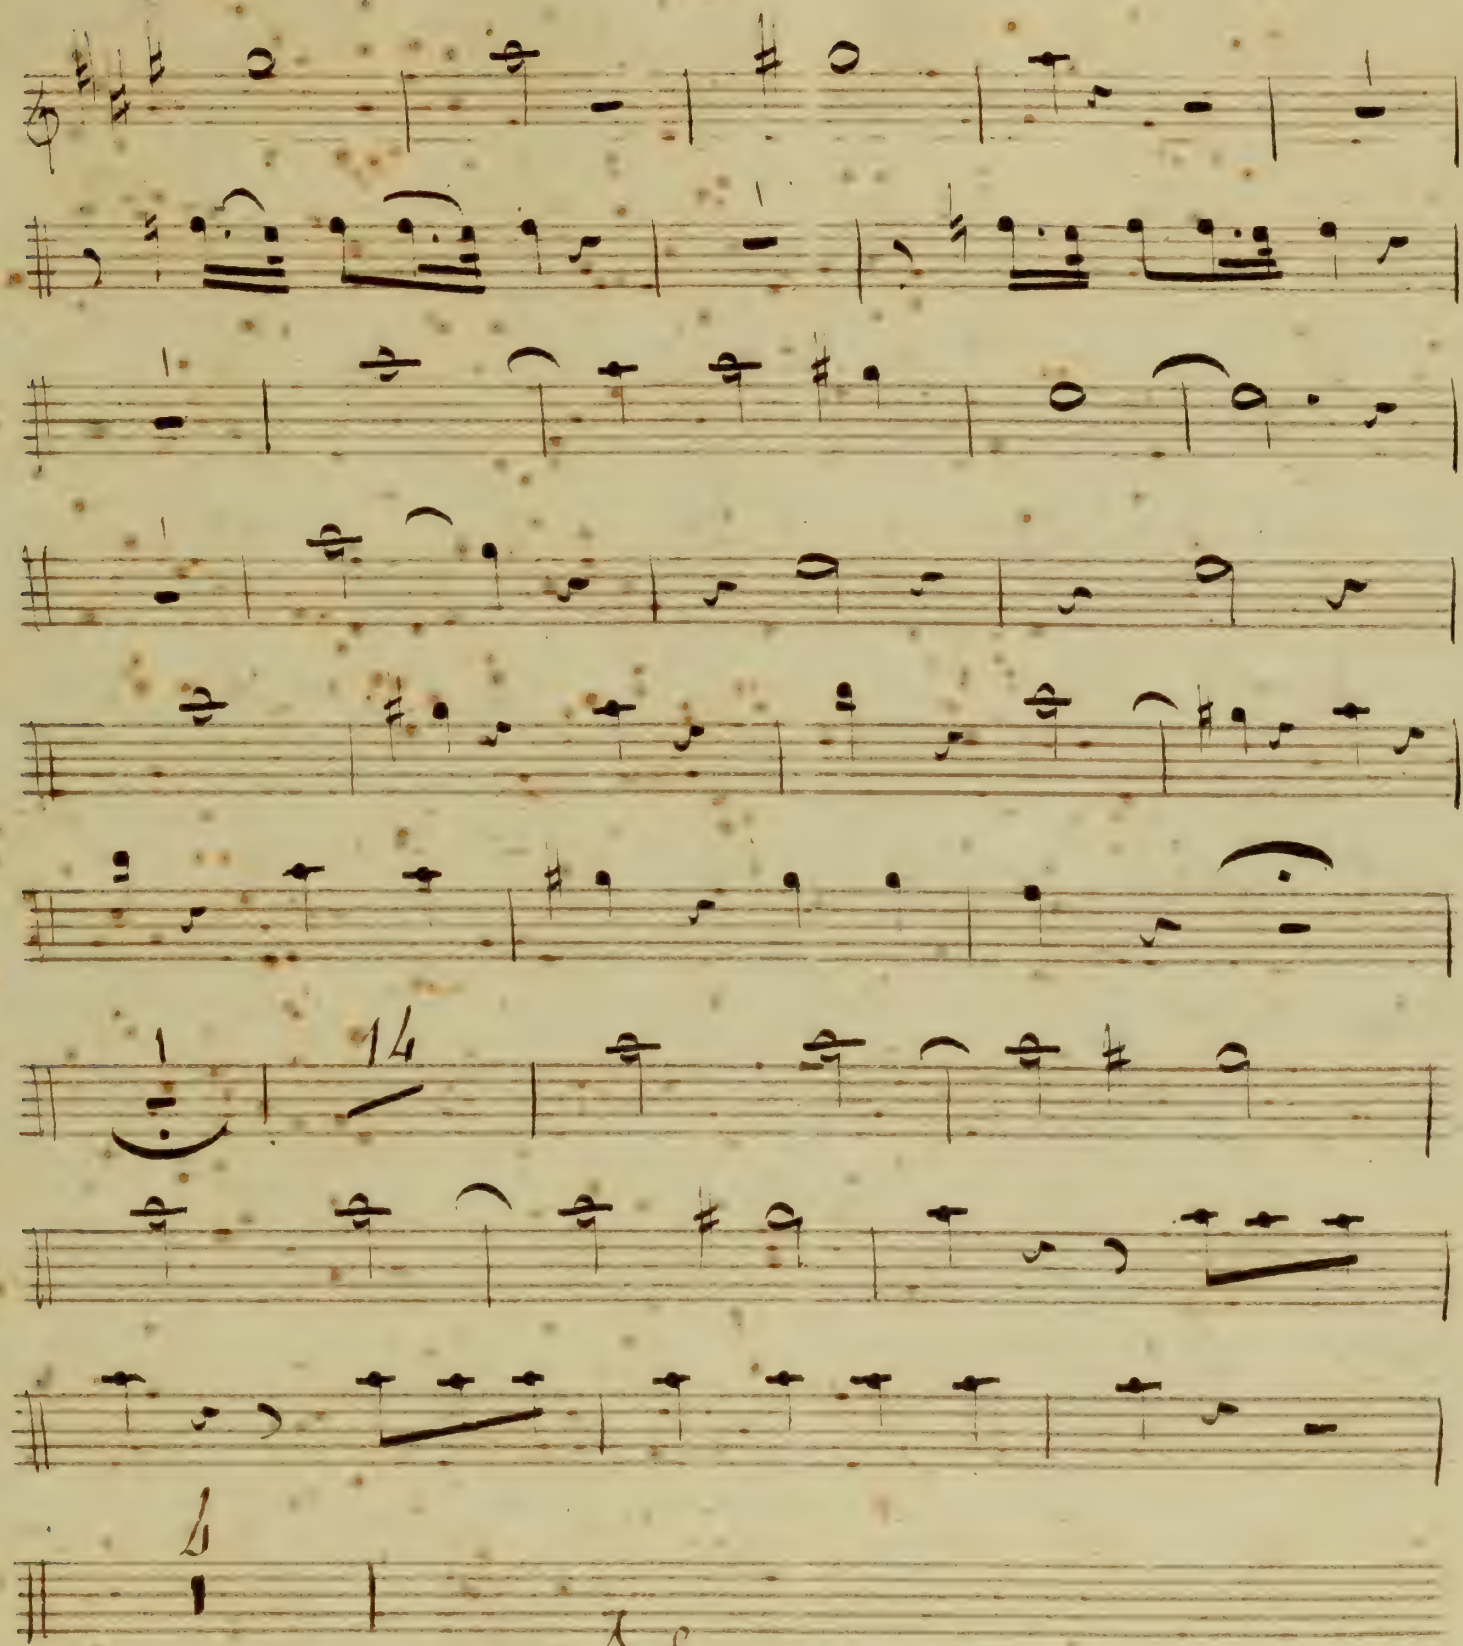 1
1
1
1
1
14
4